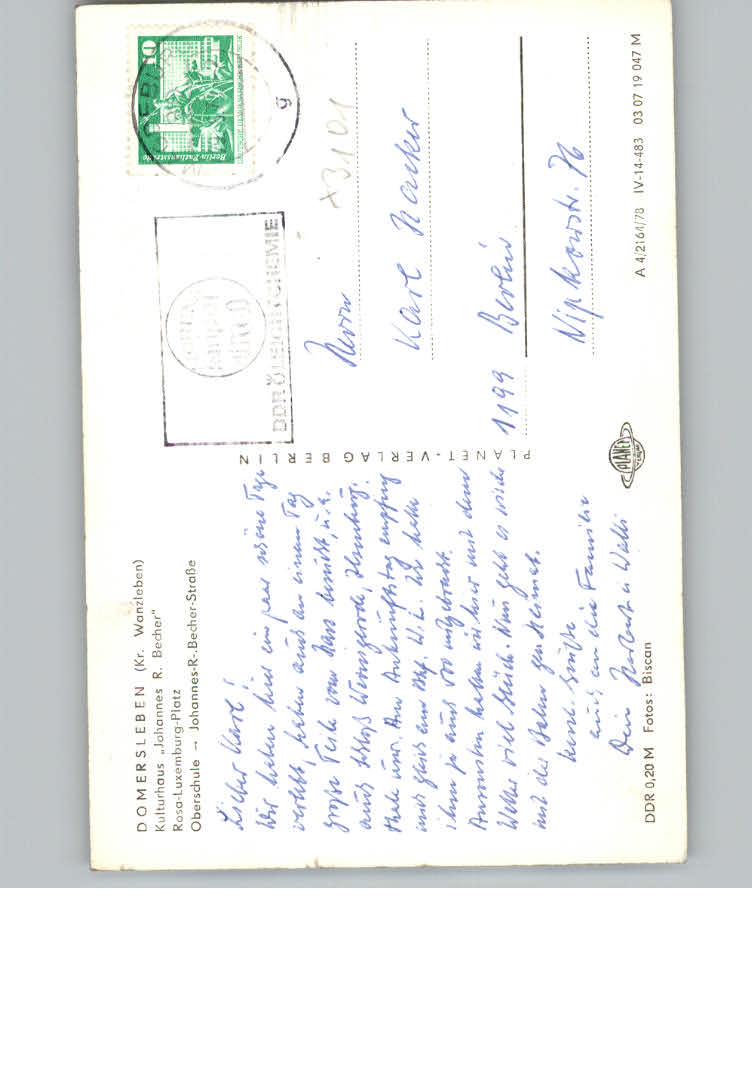 DOMERSLEBEN (Kr. Wanzleben)
Kulturhaus „Johannes R. Becher"
Rosa-Luxemburg-Platz
Oberschule – Johannes-R.-Becher-Straße
Lieber Karl!
Wir haben hier ein paar schöne Tage
verlebt, haben auch an einem Tag
große Teile vom Harz besucht, u.a.
auch Schloß Wernigerode, Ilsenburg,
Thale usw. Am Ankunftstag empfing
uns gleich ein
ihm ja auch
Ansonsten hatten wir hier mit dem
Wetter viel Glück. Nun geht es wieder
mit der Bahn gen Heimat.
Grüße
auch an die Familie
Dein Herbert u. Walli
DDR 0,20 M Fotos: Biscan
PLANET-VERLAG BERLIN
PLANET
VERLAG
10
Berlin-Rathausstraße
DEUTSCHE DEMOKRATISCHE REPUBLIK
g
DDR
CHEMIE
X3101
Herrn
Karl Hacker
1199 Berlin
Nipkowstr. 76
A 4/2164/78 IV-14-483 03 07 19 047 M